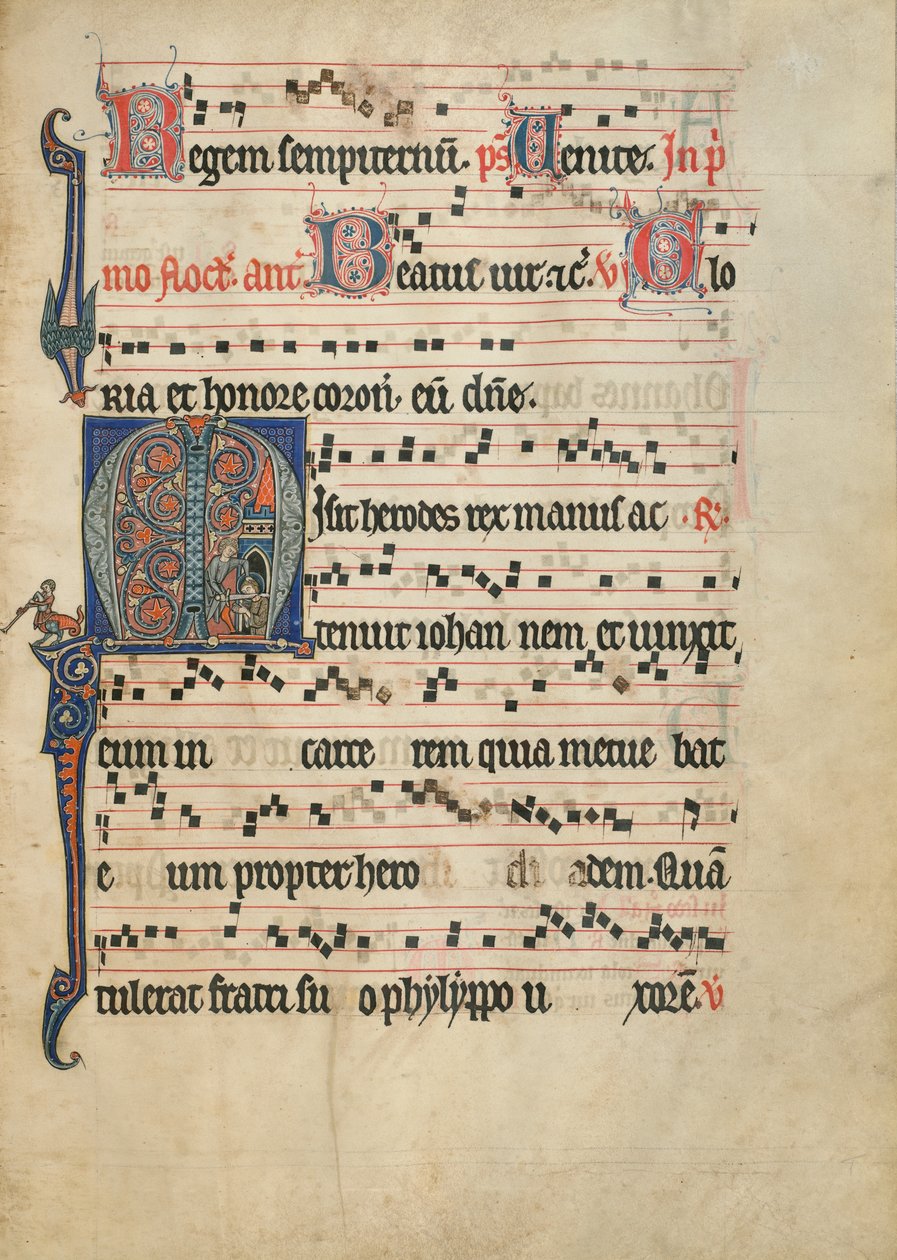 Regem sempiternū. ps̄ Uenite. In p̓
mo noct̓. ant̓. Beatus uir. ⁊c̓. ℣ Glo
ria et honore coron̓. eū dn̄e.
Misit herodes rex manus ac ℟.
tenuit iohan nem et uinxit
eum in carce rem quia metue bat
e um propter hero di adem. Quā
tulerat fratri su o phylyppo u xorē. ℣